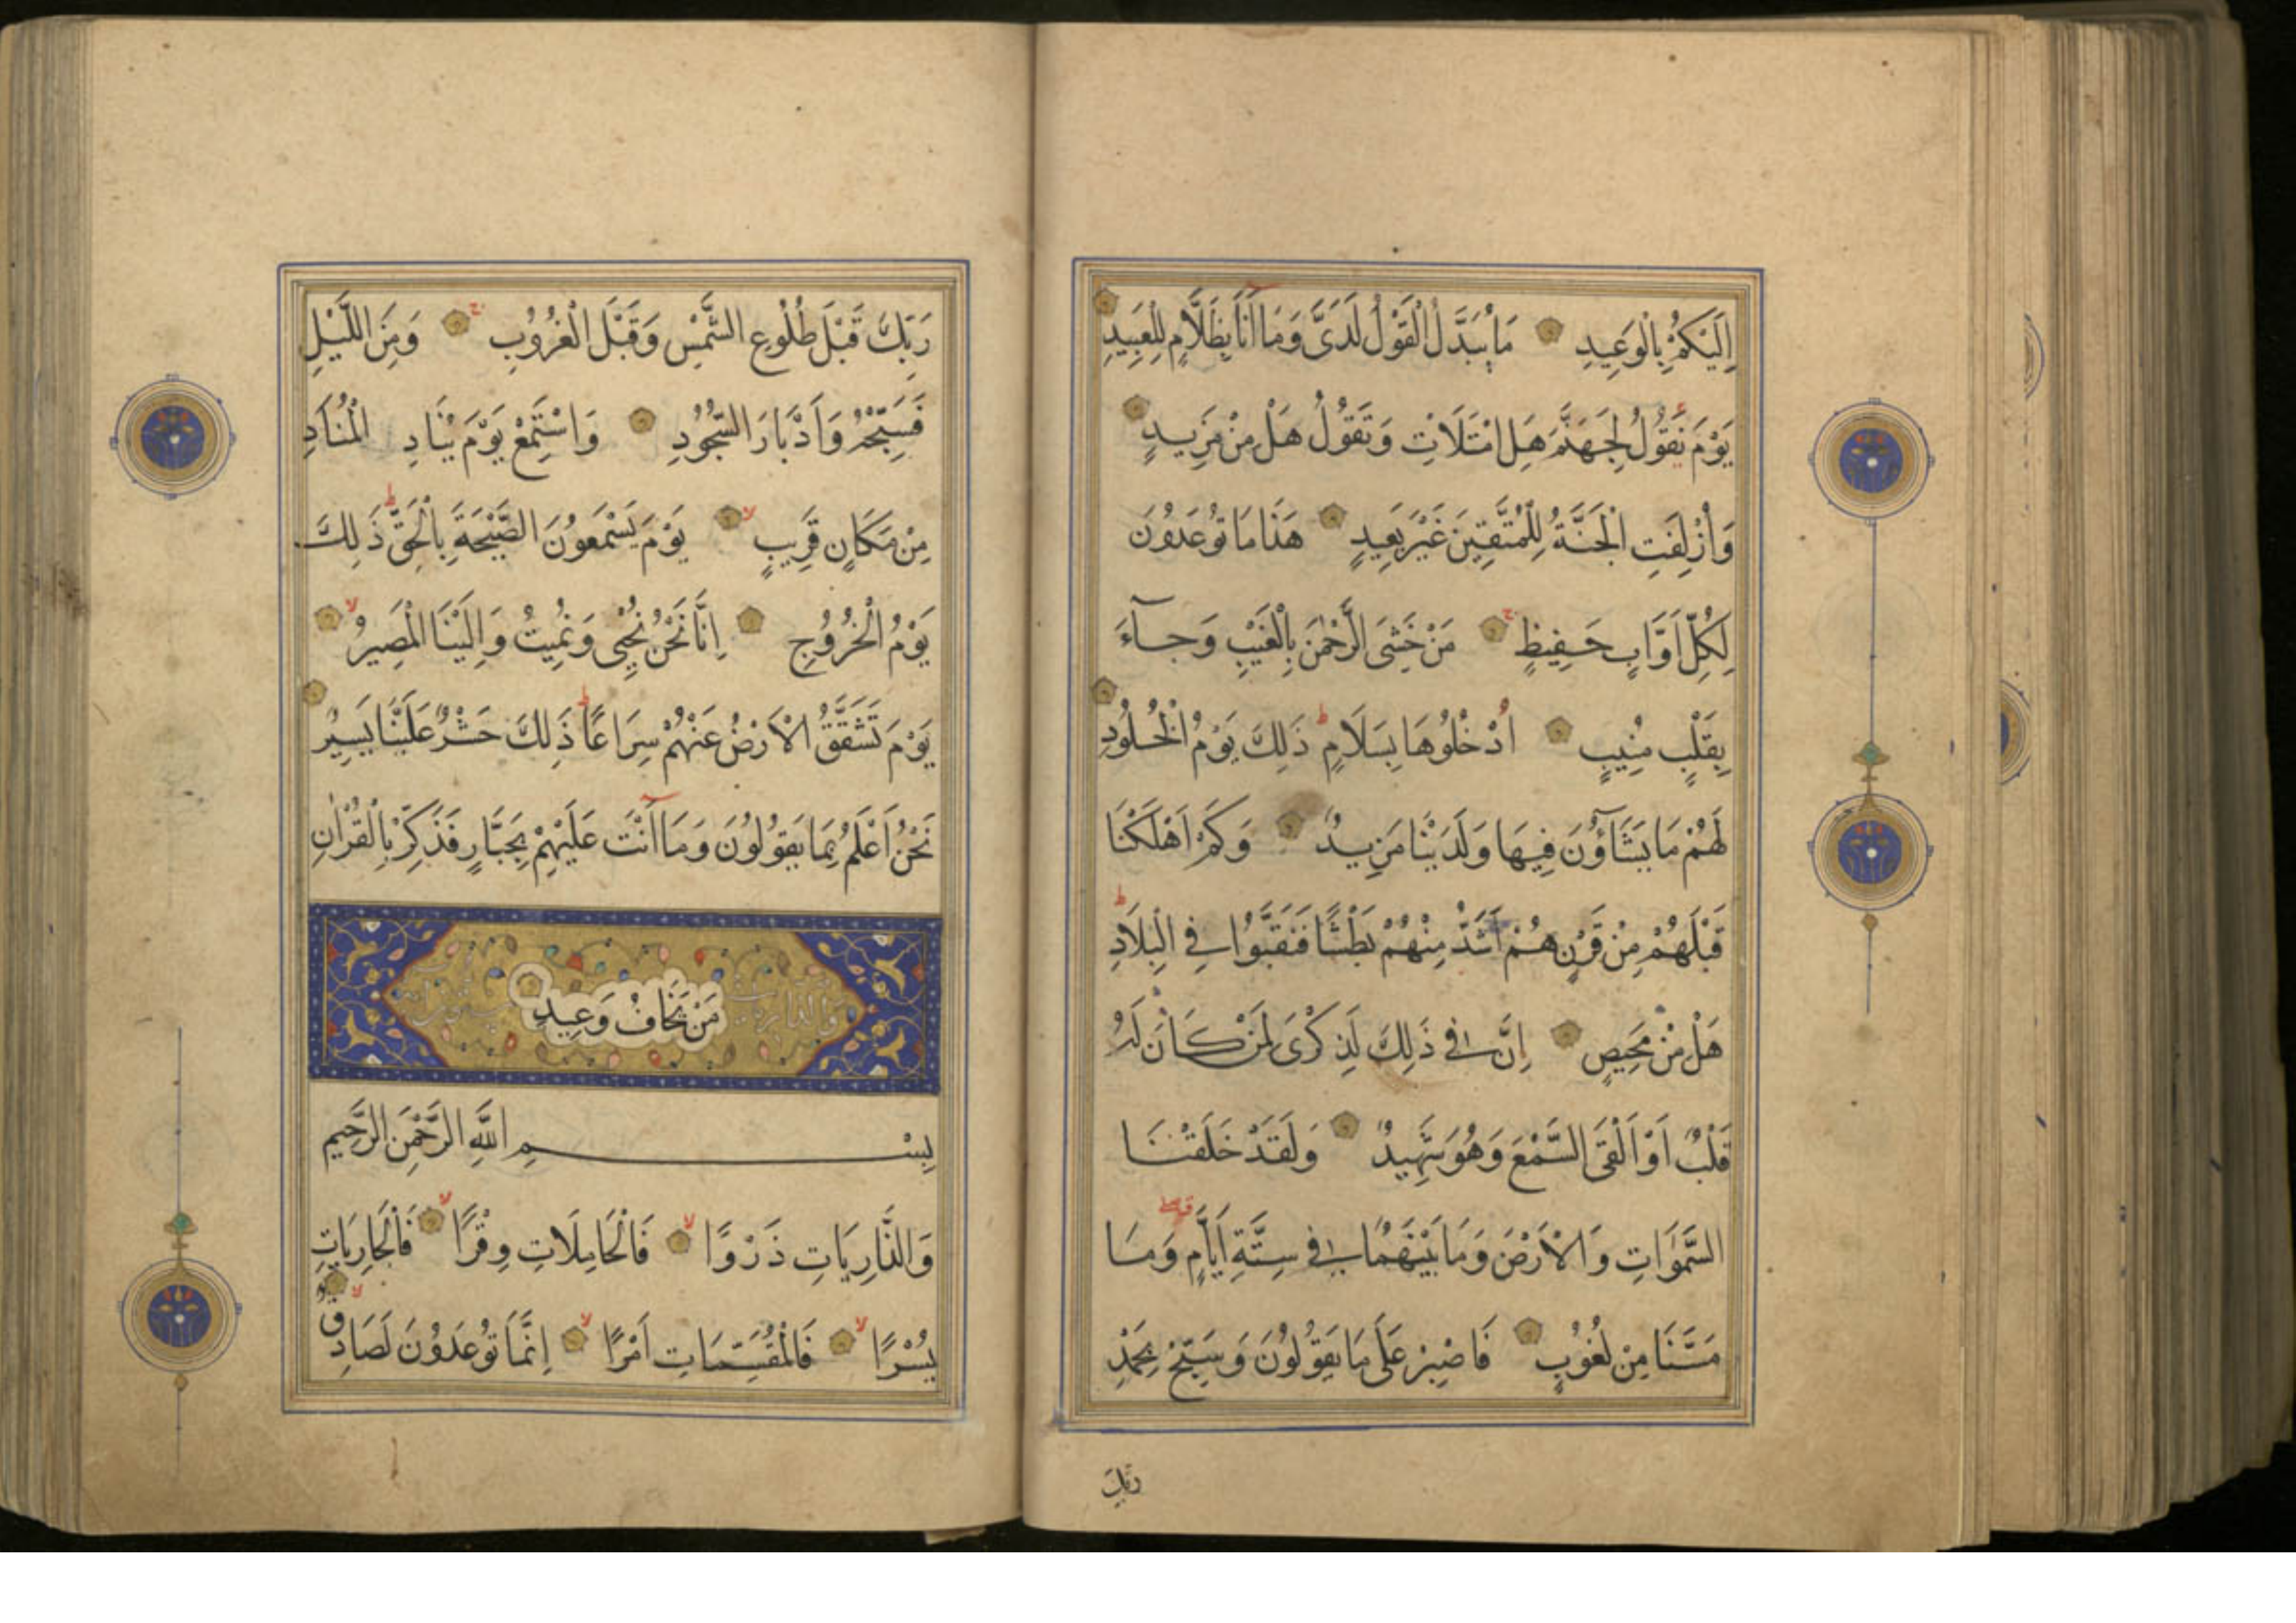 اِلَيْكُمْ بِالْوَعِيدِ مَا يُبَدَّلُ الْقَوْلُ لَدَىَّ وَمَا اَنَا بِظَلَّامٍ لِلْعَبِيدِ
يَوْمَ نَقُولُ لِجَهَنَّمَ هَلِ امْتَلَاْتِ وَتَقُولُ هَلْ مِنْ مَزِيدٍ
وَاُزْلِفَتِ الْجَنَّةُ لِلْمُتَّقِينَ غَيْرَ بَعِيدٍ هَذَا مَا تُوعَدُونَ
لِكُلِّ اَوَّابٍ حَفِيظٍ مَنْ خَشِىَ الرَّحْمٰنَ بِالْغَيْبِ وَجَآءَ
بِقَلْبٍ مُنِيبٍ اُدْخُلُوهَا بِسَلَامٍ ذَلِكَ يَوْمُ الْخُلُودِ
لَهُمْ مَا يَشَآؤُنَ فِيهَا وَلَدَيْنَا مَزِيدٌ وَكَمْ اَهْلَكْنَا
قَبْلَهُمْ مِنْ قَرْنٍ هُمْ اَشَدُّ مِنْهُمْ بَطْشًا فَنَقَّبُوا فِى الْبِلَادِ
هَلْ مِنْ مَحِيصٍ اِنَّ فِى ذَلِكَ لَذِكْرَى لِمَنْ كَانَ لَهُ
قَلْبٌ اَوْ اَلْقَى السَّمْعَ وَهُوَ شَهِيدٌ وَلَقَدْ خَلَقْنَا
السَّمٰوَاتِ وَالْاَرْضَ وَمَا بَيْنَهُمَا فِى سِتَّةِ اَيَّامٍ وَمَا
مَسَّنَا مِنْ لُغُوبٍ فَاصْبِرْ عَلَى مَا يَقُولُونَ وَسَبِّحْ بِحَمْدِ
رَبِّكَ
رَبِّكَ قَبْلَ طُلُوعِ الشَّمْسِ وَقَبْلَ الْغُرُوبِ وَمِنَ اللَّيْلِ
فَسَبِّحْهُ وَاَدْبَارَ السُّجُودِ وَاسْتَمِعْ يَوْمَ يُنَادِ الْمُنَادِ
مِنْ مَكَانٍ قَرِيبٍ يَوْمَ يَسْمَعُونَ الصَّيْحَةَ بِالْحَقِّ ذَلِكَ
يَوْمُ الْخُرُوجِ اِنَّا نَحْنُ نُحْيِى وَنُمِيتُ وَاِلَيْنَا الْمَصِيرُ
يَوْمَ تَشَقَّقُ الْاَرْضُ عَنْهُمْ سِرَاعًا ذَلِكَ حَشْرٌ عَلَيْنَا يَسِيرٌ
نَحْنُ اَعْلَمُ بِمَا يَقُولُونَ وَمَا اَنْتَ عَلَيْهِمْ بِجَبَّارٍ فَذَكِّرْ بِالْقُرْاٰنِ
مَنْ يَخَافُ وَعِيدِ
بِسْمِ اللَّهِ الرَّحْمٰنِ الرَّحِيمِ
وَالذَّارِيَاتِ ذَرْوًا فَالْحَامِلَاتِ وِقْرًا فَالْجَارِيَاتِ
يُسْرًا فَالْمُقَسِّمَاتِ اَمْرًا اِنَّمَا تُوعَدُونَ لَصَادِقٌ